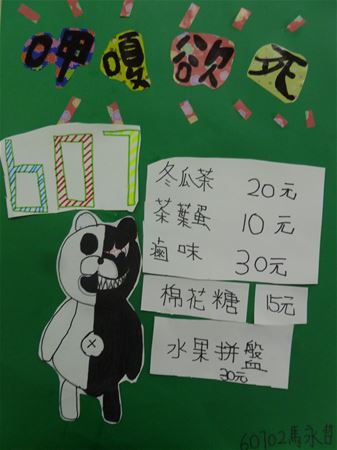 呷嘎欲死
607
冬瓜茶 20元
茶葉蛋 10元
滷味 30元
棉花糖 15元
水果拼盤
30元
60702馬永哲